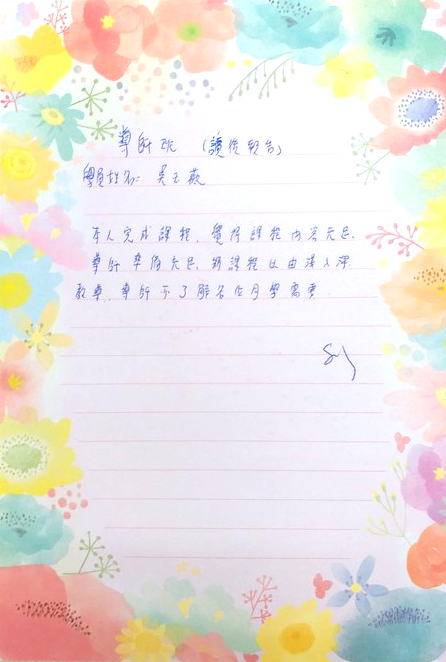 導師班 (讀後報告)
學員姓名: 吳玉燕
本人完成課程, 覺得課程內容充足,
導師準備充足, 將課程以由淺入深
教導, 導師亦了解各位同學需要